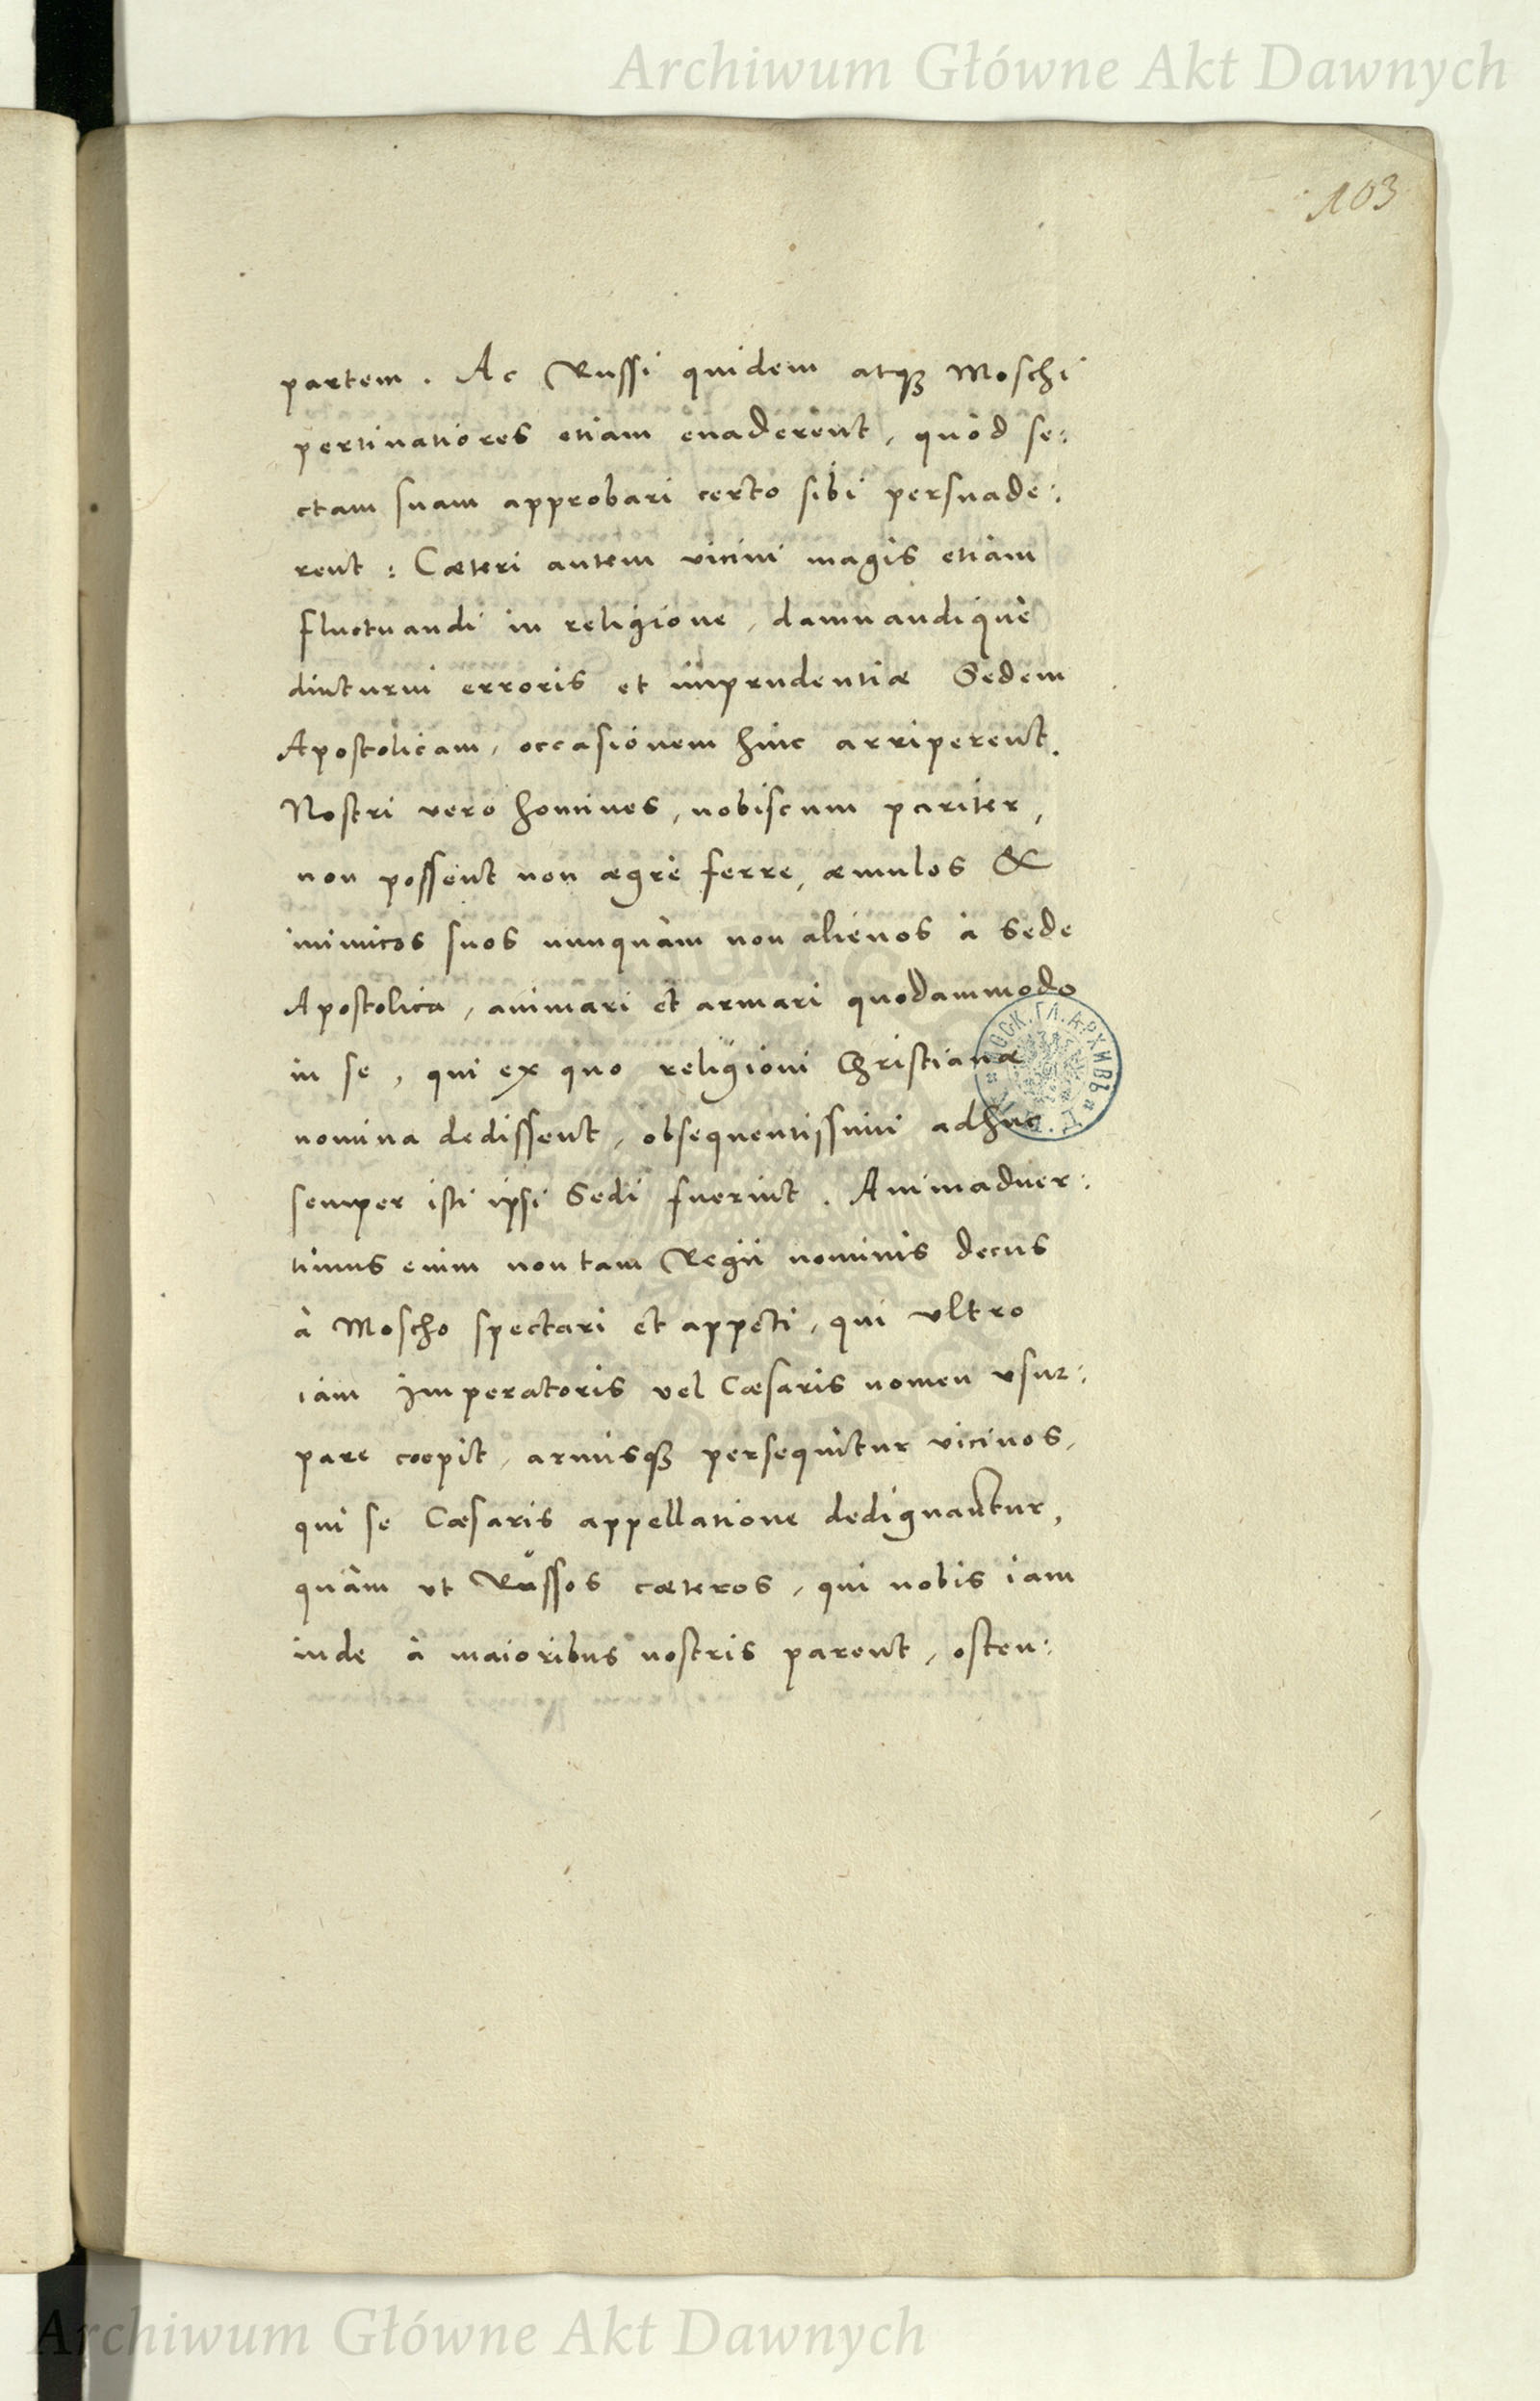 Archiwum Główne Akt Dawnych
103
partem. Ac Russi quidem atqꝫ Moschi
pertinatiores etiam euaderent, quòd se:
ctam suam approbari certo sibi persuade:
rent: Cæteri autem vicini magis etiam
fluctuandi in religione, damnandique
diuturni erroris et imprudentiæ Sedem
Apostolicam, occasionem hinc arriperent.
Nostri vero homines, nobiscum pariter,
non possent non ægrè ferre, æmulos &
inimicos suos nunquàm non alienos à Sede
Apostolica, animari et armari quodammodo
in se, qui ex quo religioni Christianæ
nomina dedissent, obsequentissimi adhuc
semper isti ipsi Sedi fuerint. Animaduer:
timus enim non tam Regii nominis decus
à Moscho spectari et appeti, qui vltro
iam Imperatoris vel Cæsaris nomen vsur:
pare coepit, armisqꝫ persequitur vicinos,
qui se Cæsaris appellatione dedignantur,
quàm vt Russos cæteros, qui nobis iam
inde à maioribus nostris parent, osten:
Archiwum Główne Akt Dawnych